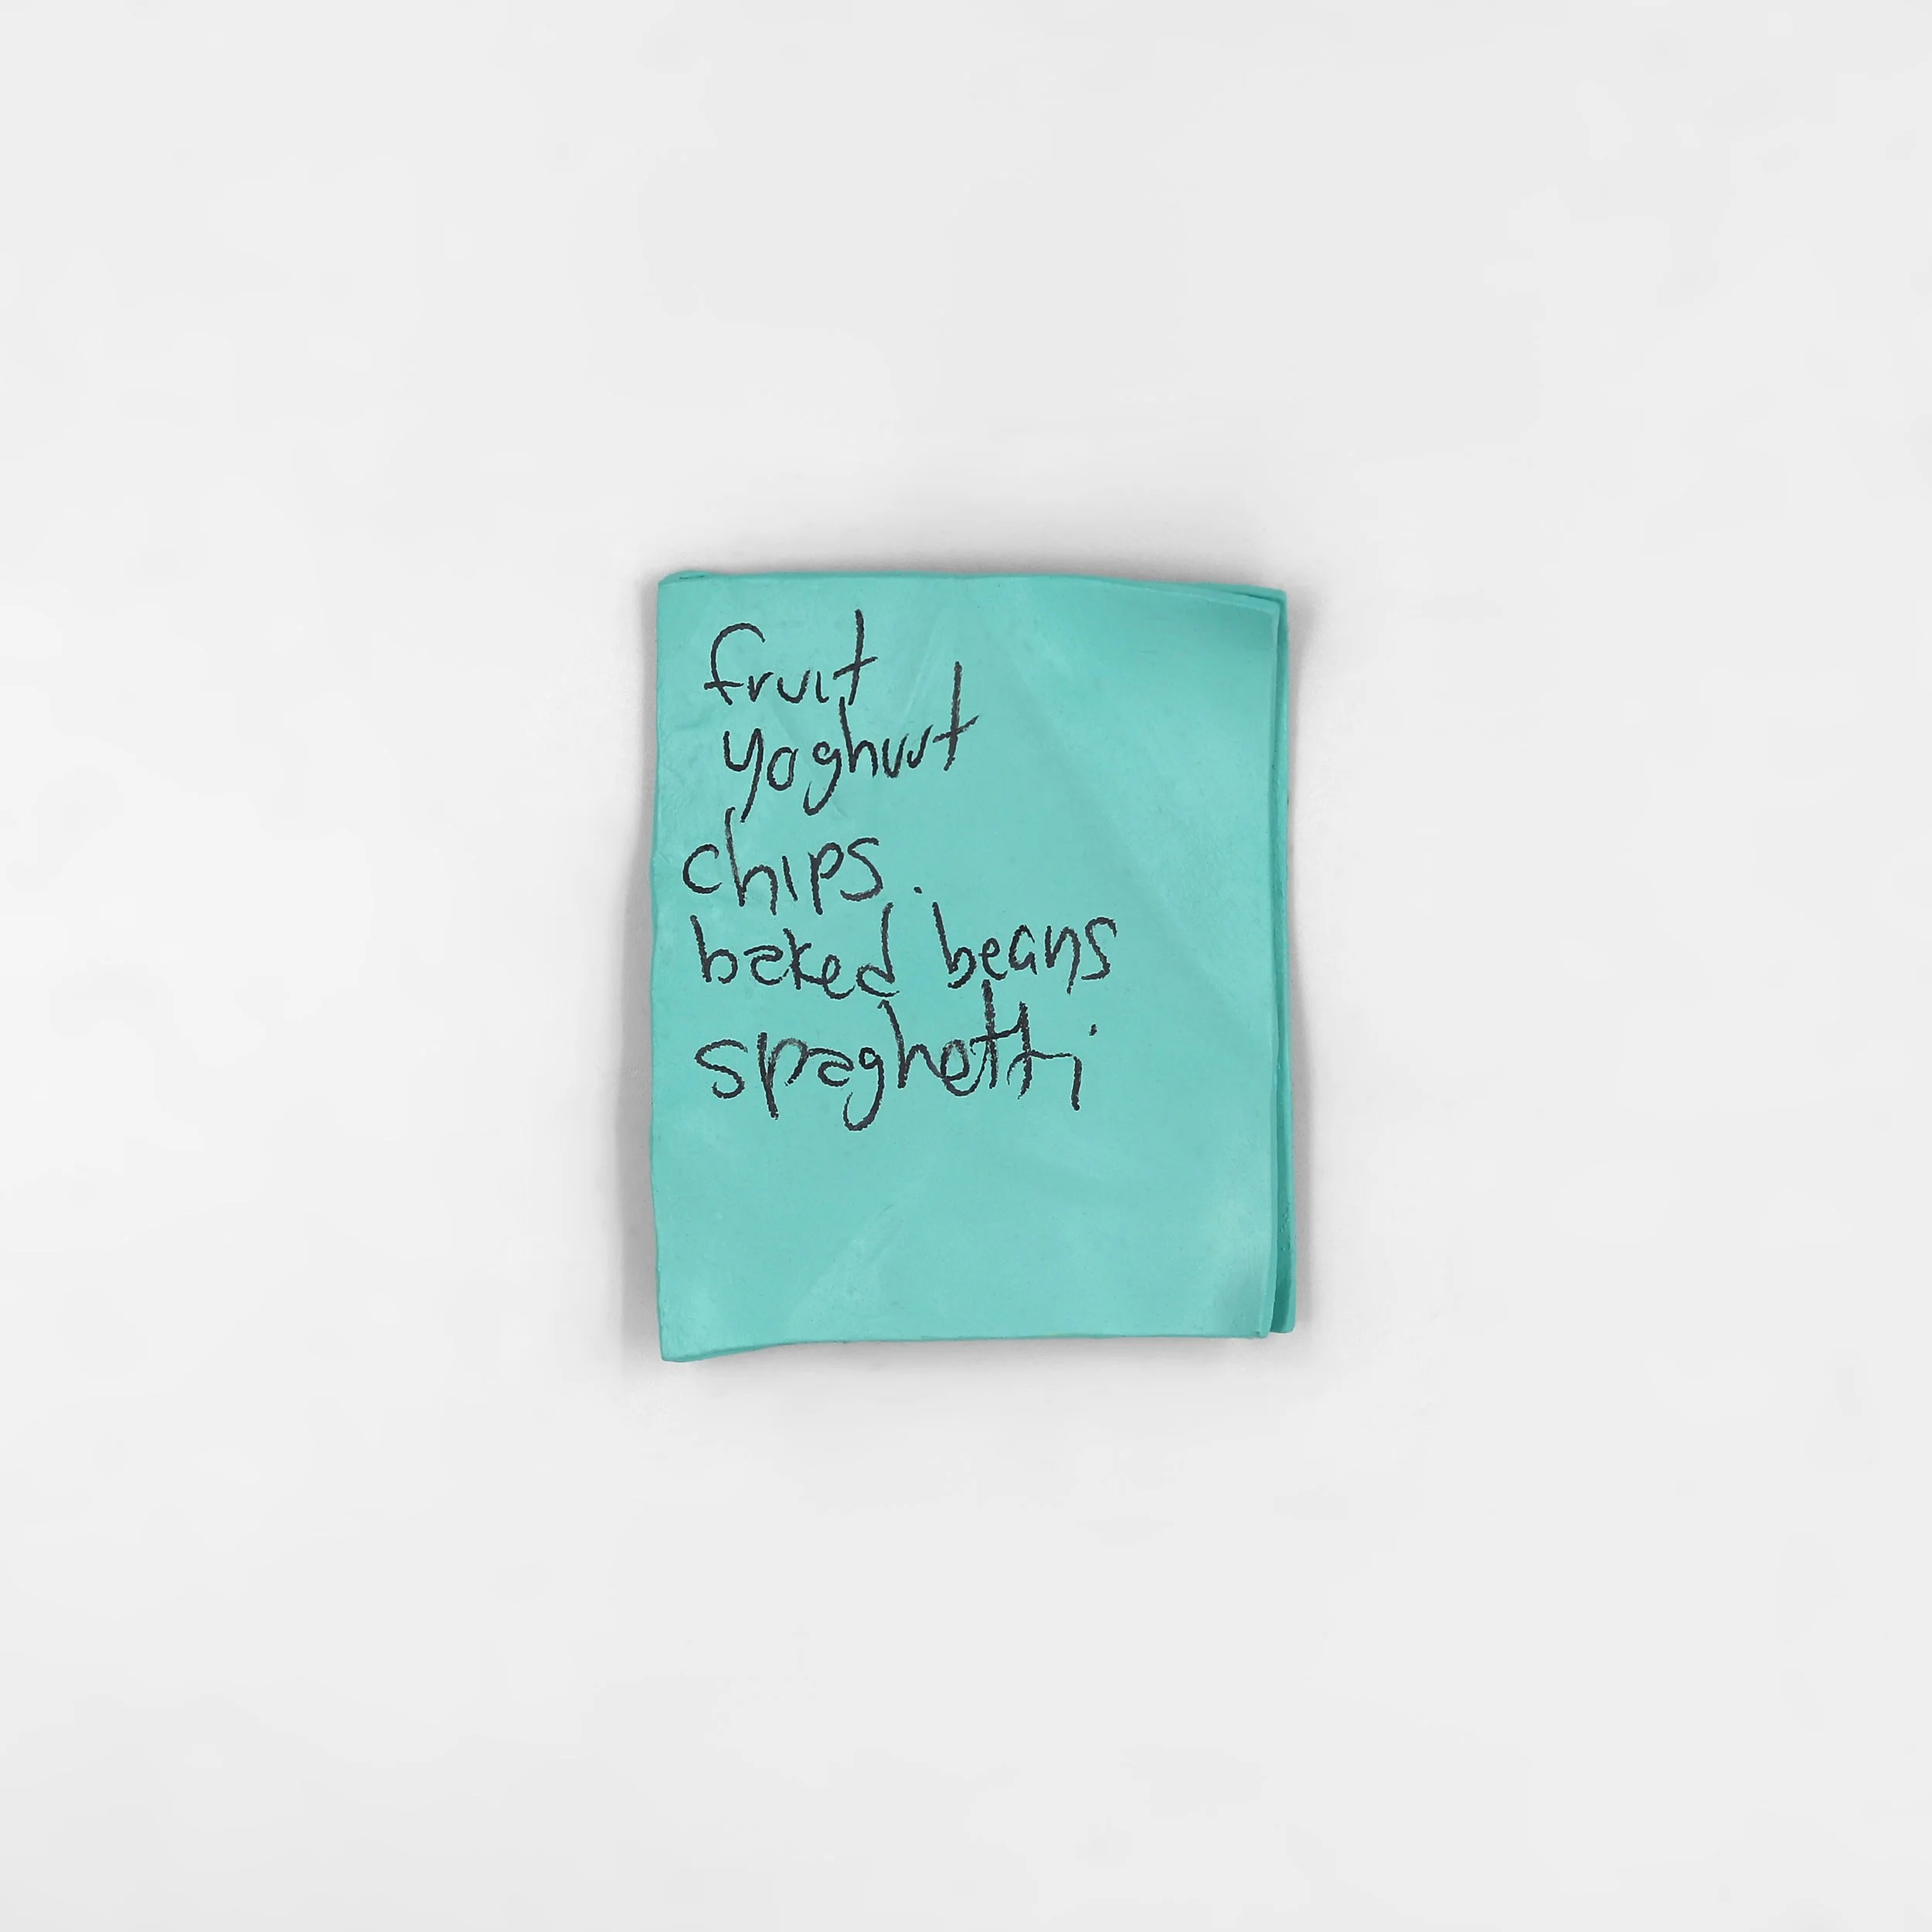 fruit
yoghurt
chips.
baked beans
spaghetti